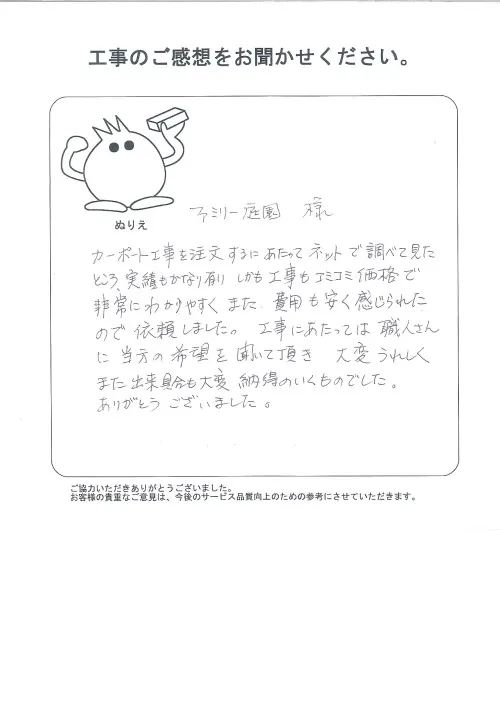 工事のご感想をお聞かせください。
ぬりえ
ファミリー庭園 様
カーポート工事を注文するにあたって ネットで調べて見た
ところ、実績もかなり有り しかも工事もコミコミ価格で
非常にわかりやすく また、費用も安く感じられた
ので 依頼しました。 工事にあたっては 職人さん
に 当方の 希望を 聞いて頂き 大変 うれしく
また 出来具合も大変 納得のいくものでした。
ありがとう ございました。
ご協力いただきありがとうございました。
お客様の貴重なご意見は、今後のサービス品質向上のための参考にさせていただきます。